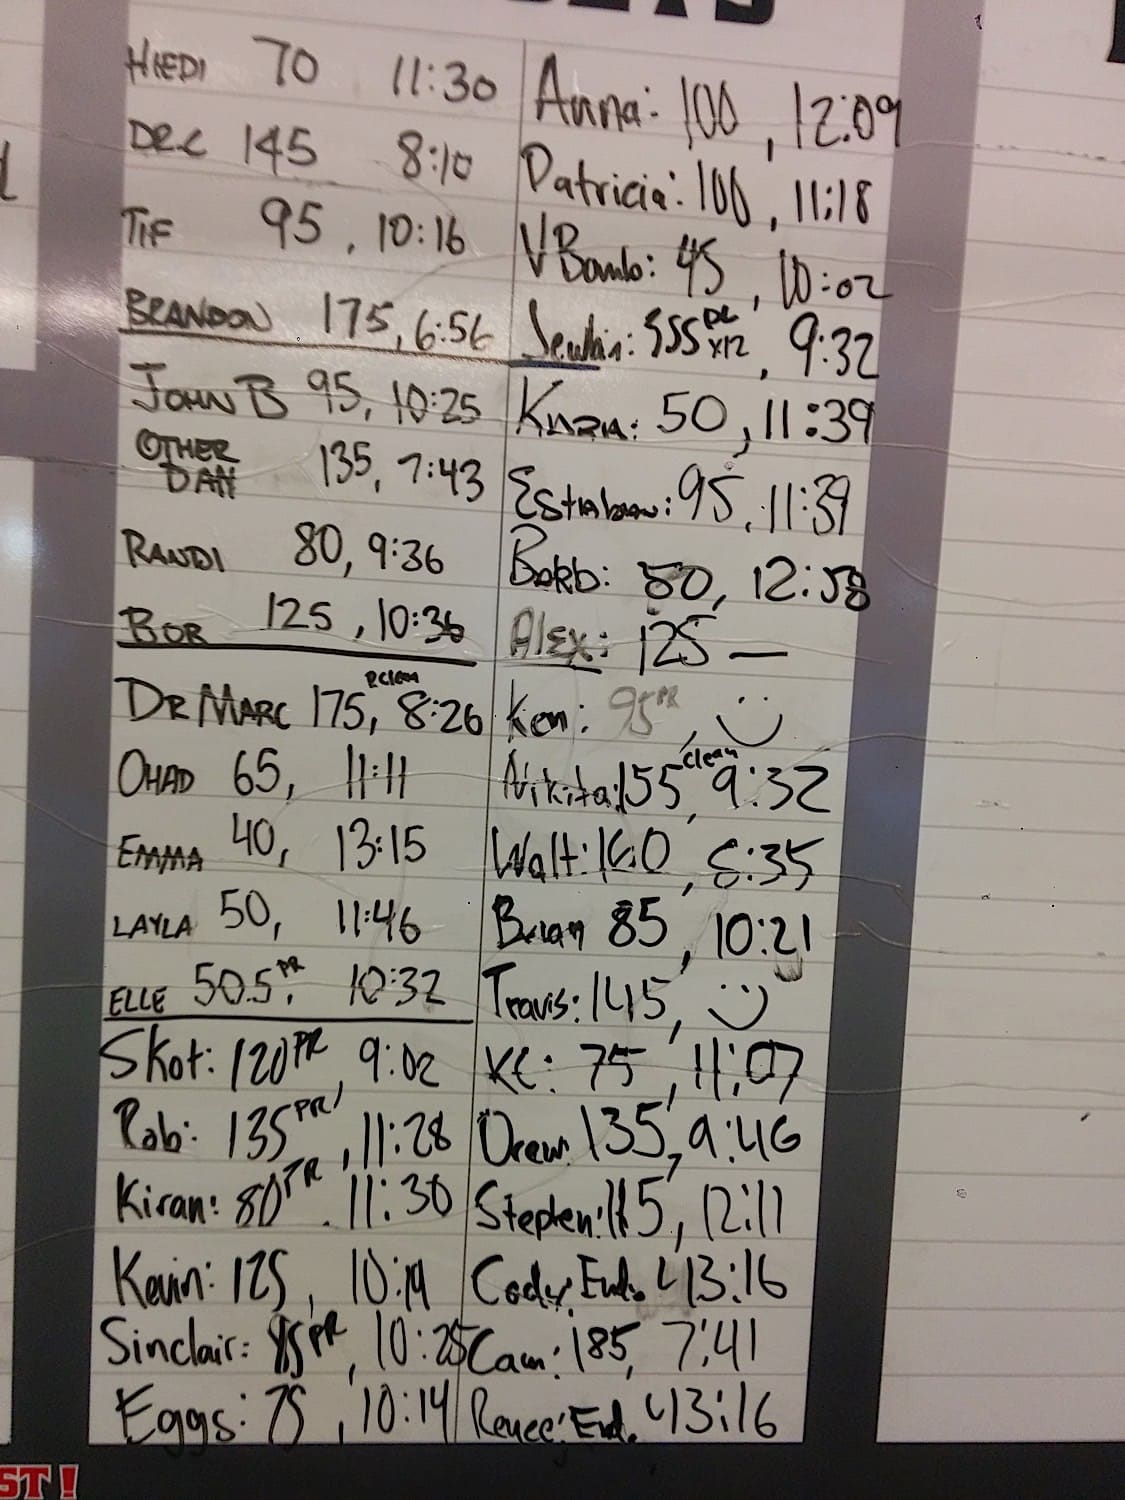 HIEDI 70 11:30
DR.C 145 8:10
TIF 95, 10:16
BRANDON 175, 6:56
JOHN B 95, 10:25
OTHER
DAN 135, 7:43
RANDI 80, 9:36
BOB 125, 10:36
DR MARC 175, P.clean 8:26
OHAD 65, 11:11
EMMA 40, 13:15
LAYLA 50, 11:46
ELLE 50.5 PR, 10:32
Skot: 120 PR, 9:02
Rob: 135 PR!, 11:28
Kiran: 80 PR, 11:30
Kevin: 125, 10:19
Sinclair: 85 PR, 10:25
Eggs: 75, 10:14
Anna: 100, 12:09
Patricia: 100, 11:18
V Bomb: 45, 10:02
DL x12, 9:32
50, 11:39
95, 11:39
Barb: 50, 12:58
Alex: 125 —
Ken: 95 PR, :)
Nikita: 155 clean, 9:32
Walt: 160, 8:35
Brian 85, 10:21
Travis: 145, :)
KC: 75, 11:07
Drew: 135, 9:46
Stephen: 115, 12:11
Cody: End. 13:16
Cam: 185, 7:41
Renee: End. 13:16
ST!